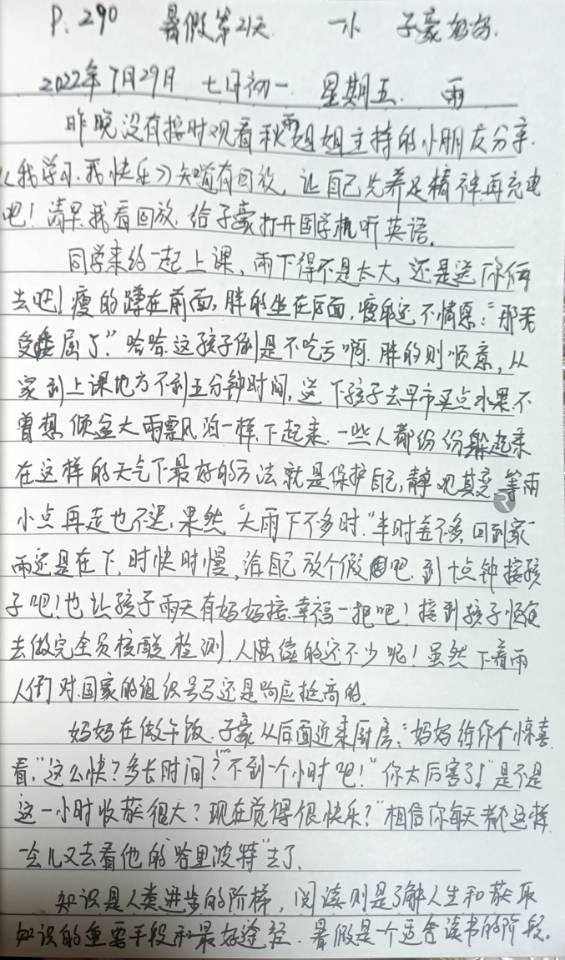 P.290 暑假第21天 一小 子豪妈妈.
2022年7月29日 七月初一 星期五. 雨
昨晚没有按时观看秋霞姐姐主持的小朋友分享.
《我学习.我快乐》知道有回放,让自己先养足精神再充电
吧!清早我看回放,给子豪打开国学机听英语.
同学来约一起上课,雨下得不是太大,还是送你俩
去吧!瘦的蹲在前面,胖的坐在后面,瘦的还不情愿:“那我
受委屈了”哈哈这孩子倒是不吃亏啊.胖的则顺意,从
家到上课地方不到五分钟时间,送下孩子去早市买点水果不
曾想倾盆大雨瓢泊一样下起来.一些人都份份躲起来
在这样的天气下最好的方法就是保护自己,静观其变等雨
小点再走也不迟,果然“大雨下不多时”半时差不多,回到家
雨还是在下,时快时慢,给自己放个假吧.到十点钟接孩
子吧!也让孩子雨天有妈妈接.幸福一把吧!接到孩子
去做完全员核酸检测.人陆续的还不少呢!虽然下着雨
人们对国家的组织号召还是响应挺高的.
妈妈在做午饭.子豪从后面近来厨房:“妈妈给你个惊喜
看.”“这么快?多长时间?”“不到一个小时吧!”“你太厉害了!”是不是
这一小时收获很大?现在觉得很快乐?”相信你每天都这样
一会儿又去看他的“哈里波特”去了.
知识是人类进步的阶梯,阅读则是了解人生和获取
知识的重要手段和最好途径.暑假是一个适合读书的阶段.